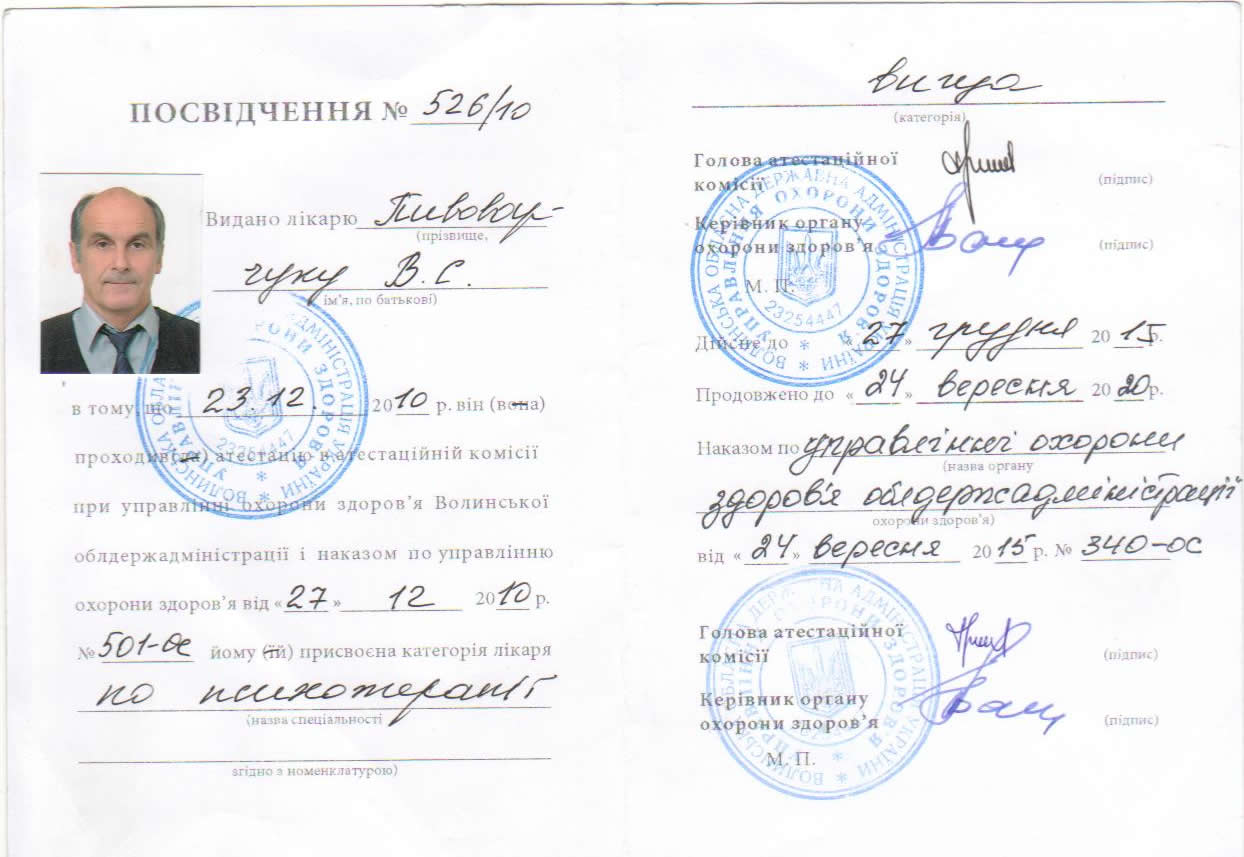 ПОСВІДЧЕННЯ № 526/10
Видано лікарю Пивовар-
(прізвище,
чуку В.С.
ім'я, по батькові)
в тому, що 23 12. 2010 р. він (вона)
проходив(ла) атестацію в атестаційній комісії
при управлінні охорони здоров'я Волинської
облдержадміністрації і наказом по управлінню
охорони здоров'я від «27» 12 2010 р.
№ 501-ос йому (їй) присвоєна категорія лікаря
по психотерапії
(назва спеціальності
згідно з номенклатурою)
вища
(категорія)
Голова атестаційної
комісії
(підпис)
Керівник органу
охорони здоров'я
(підпис)
М. П.
Дійсне до «27» грудня 2015р.
Продовжено до «24» вересня 2020р.
Наказом по управлінні охорони
(назва органу
здоров'я облдержадміністрації
охорони здоров'я)
від «24» вересня 2015 р. № 340-ос
Голова атестаційної
комісії
(підпис)
Керівник органу
охорони здоров'я
(підпис)
М. П.
ВОЛИНСЬКА ОБЛАСНА ДЕРЖАВНА АДМІНІСТРАЦІЯ УКРАЇНИ
УПРАВЛІННЯ ОХОРОНИ ЗДОРОВ'Я
23254447